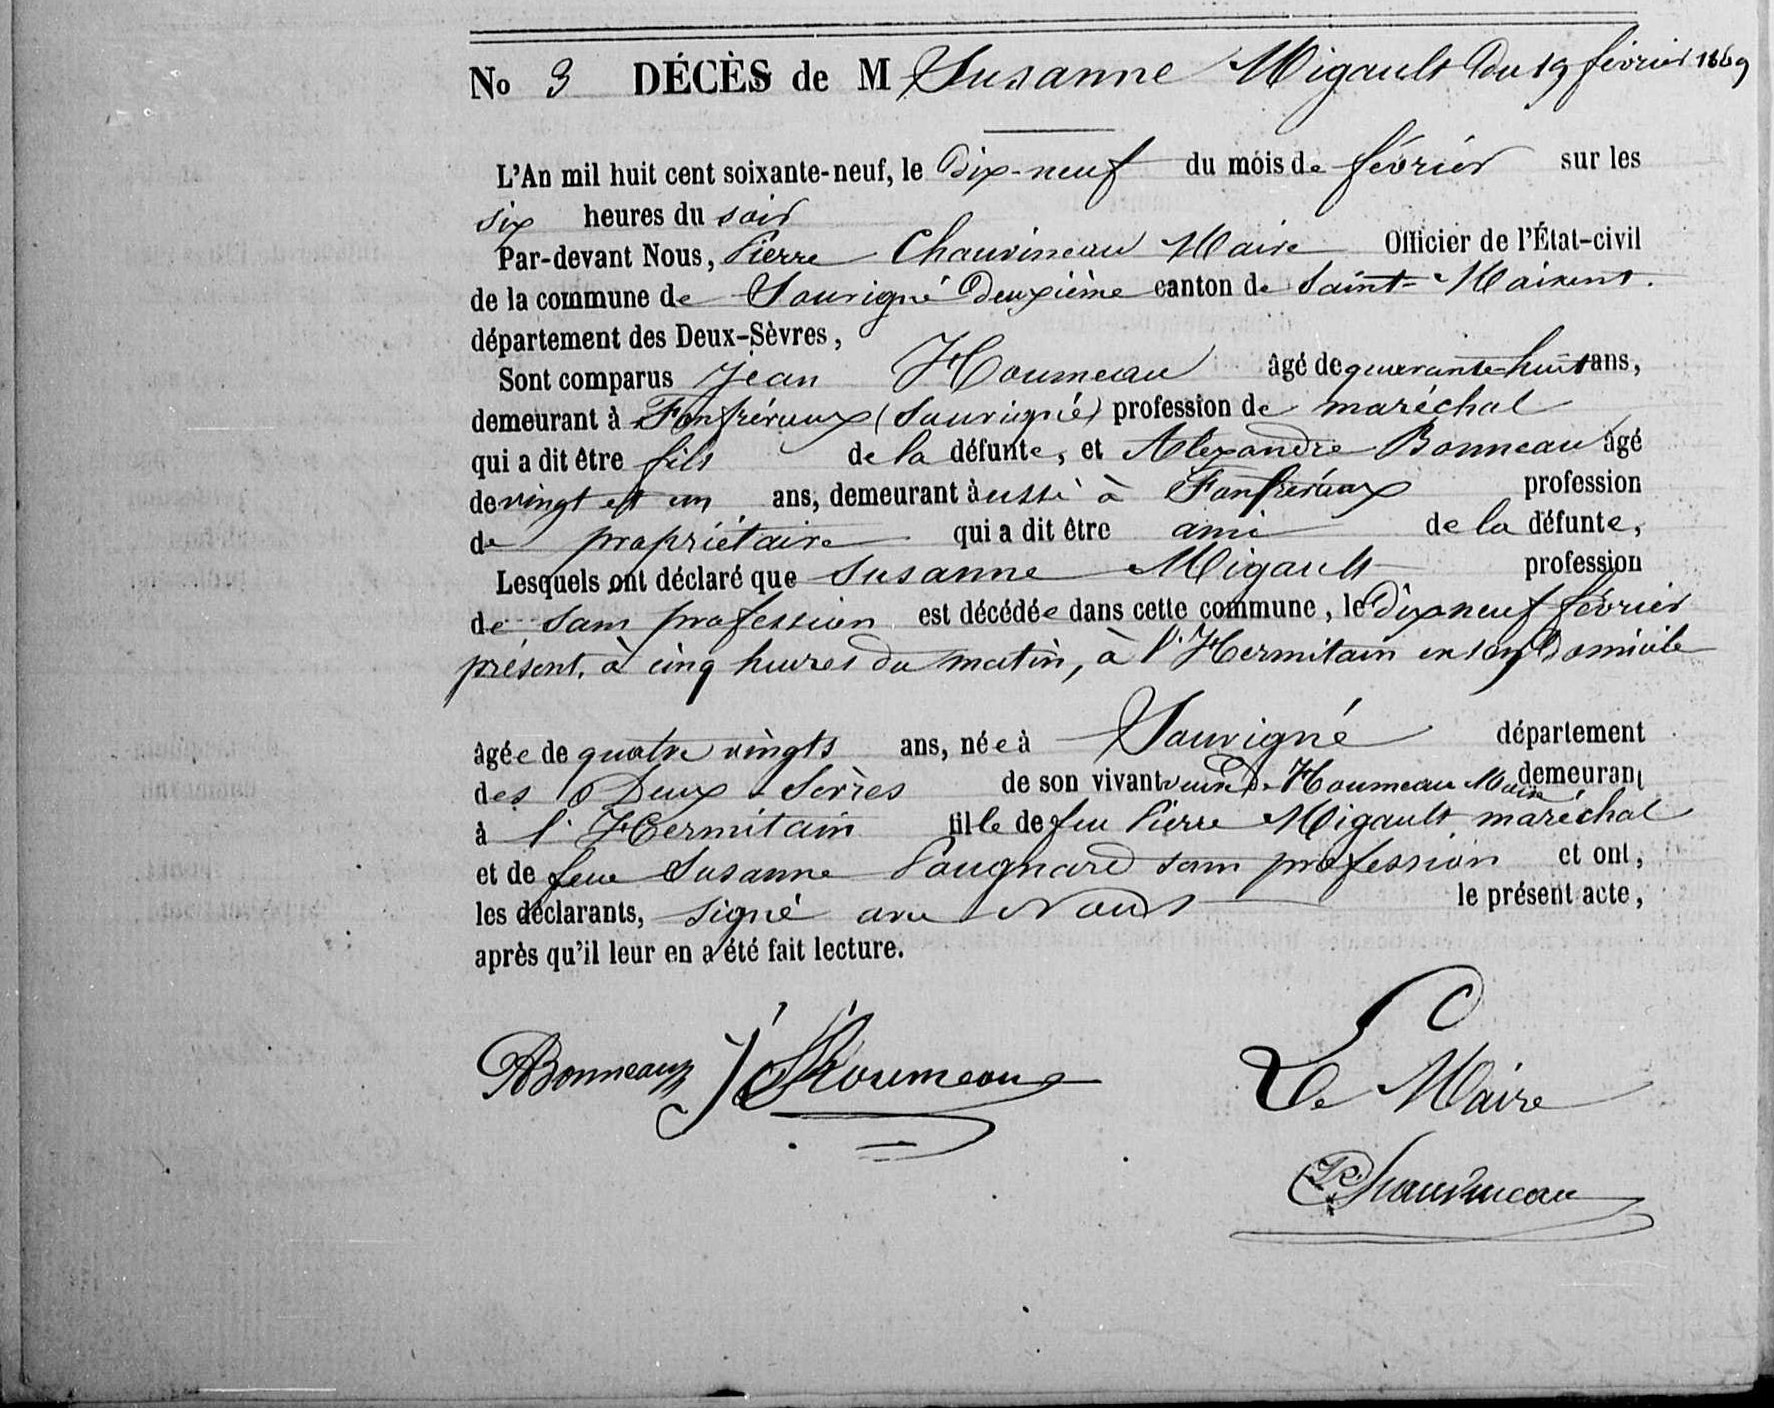 No 3 DÉCÈS de M Susanne Migault Du 19 février 1869
L'An mil huit cent soixante-neuf, le Dix-neuf du mois de février sur les
six heures du soir
Par-devant Nous, Pierre Chauvineau Maire Officier de l'État-civil
de la commune de Souvigné Deuxième canton de Saint-Maixent.
département des Deux-Sèvres,
Sont comparus Jean Houmeau âgé de quarante-huit ans,
demeurant à Fonfréroux (Souvigné) profession de maréchal
qui a dit être fils de la défunte, et Alexandre Bonneau âgé
de vingt et un ans, demeurant aussi à Fonfréroux profession
de propriétaire qui a dit être ami de la défunte,
Lesquels ont déclaré que Susanne Migault profession
de sans profession est décédée dans cette commune, le Dix neuf février
présent, à cinq heures du matin, à l'Hermitain en son Domicile
âgée de quatre vingts ans, née à Souvigné département
des Deux-Sèvres de son vivant veuve De Houmeau demeurant
à l'Hermitain fille de feu Pierre Migault maréchal
et de feue Susanne Paugnard sans profession et ont,
les déclarants, signé avec Nous le présent acte,
après qu'il leur en a été fait lecture.
ABonneau J Houmeau
Le Maire
P. Chauvineau